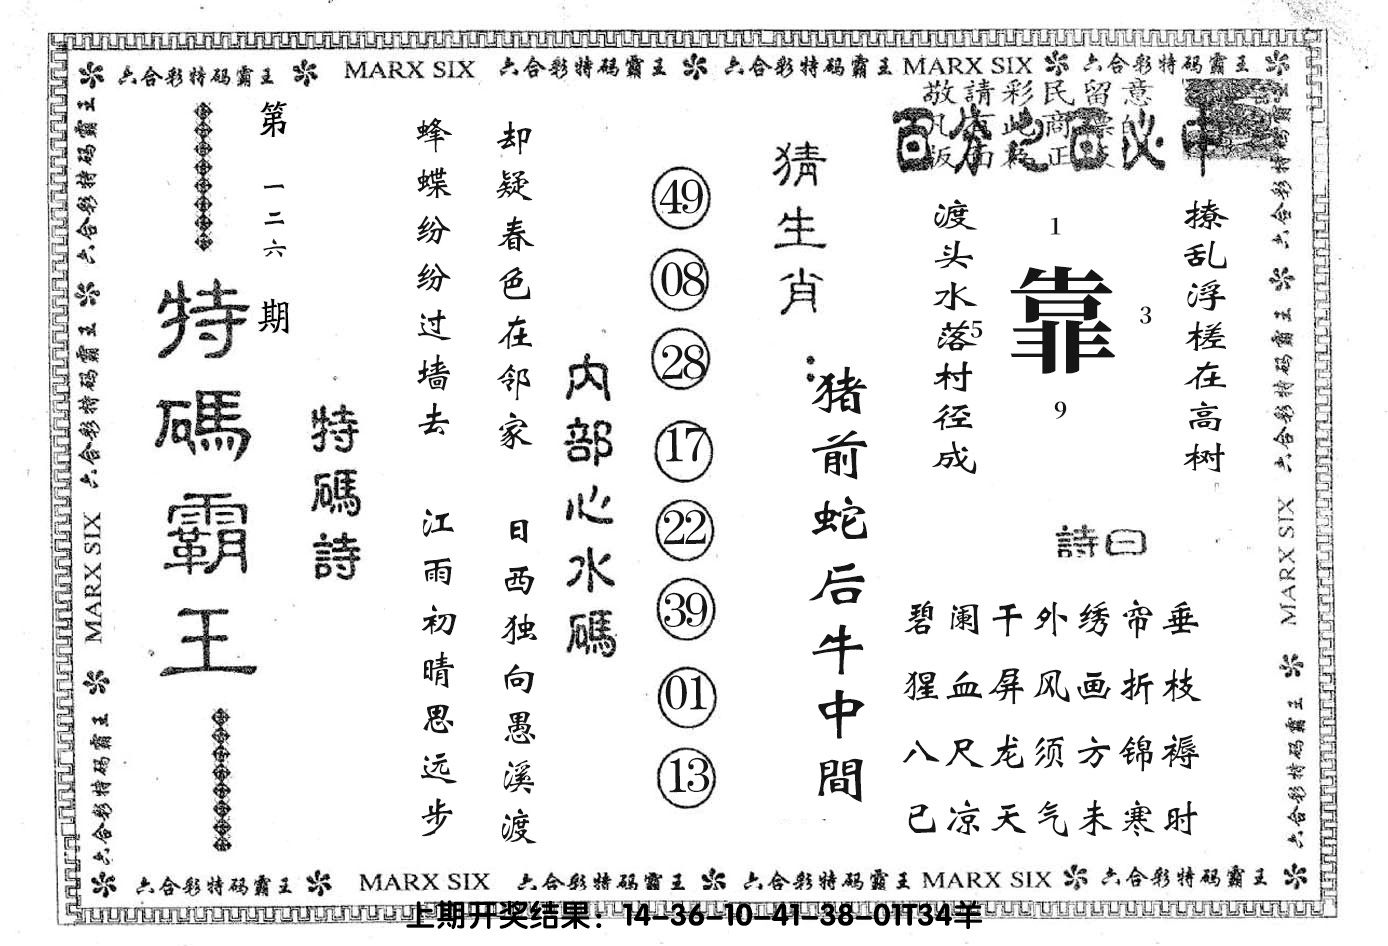 六合彩特码霸王 MARX SIX 六合彩特码霸王 六合彩特码霸王 MARX SIX 六合彩特码霸王
敬請彩民留意
百分之百必中
撩乱浮槎在高树
渡头水落村径成
1
3
5
9
靠
詩曰
碧阑干外绣帘垂
猩血屏风画折枝
八尺龙须方锦褥
已凉天气未寒时
猜生肖：
猪前蛇后牛中間
49
08
28
17
22
39
01
13
内部心水碼
却疑春色在邻家
日西独向愚溪渡
蜂蝶纷纷过墙去
江雨初晴思远步
特碼詩
第一二六期
特碼霸王
六合彩特码霸王 六合彩特码霸王 MARX SIX 六合彩特码霸王
六合彩特码霸王 六合彩特码霸王 MARX SIX 六合彩特码霸王
六合彩特码霸王 MARX SIX 六合彩特码霸王 六合彩特码霸王 MARX SIX 六合彩特码霸王
上期开奖结果：14-36-10-41-38-01T34羊